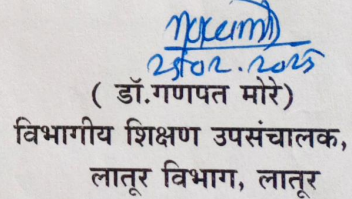 25/02.2025
( डॉ.गणपत मोरे)
विभागीय शिक्षण उपसंचालक,
लातूर विभाग, लातूर